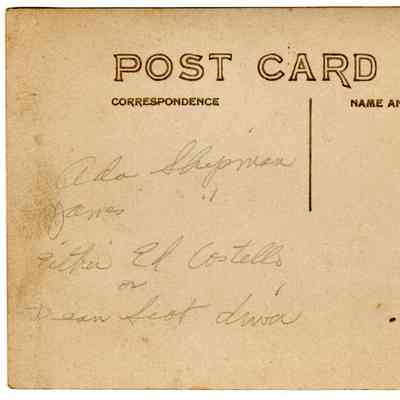 POST CARD
CORRESPONDENCE
NAME AN
Ada Shipman
James "
Either Ed Costello
or
Dean Scot driver